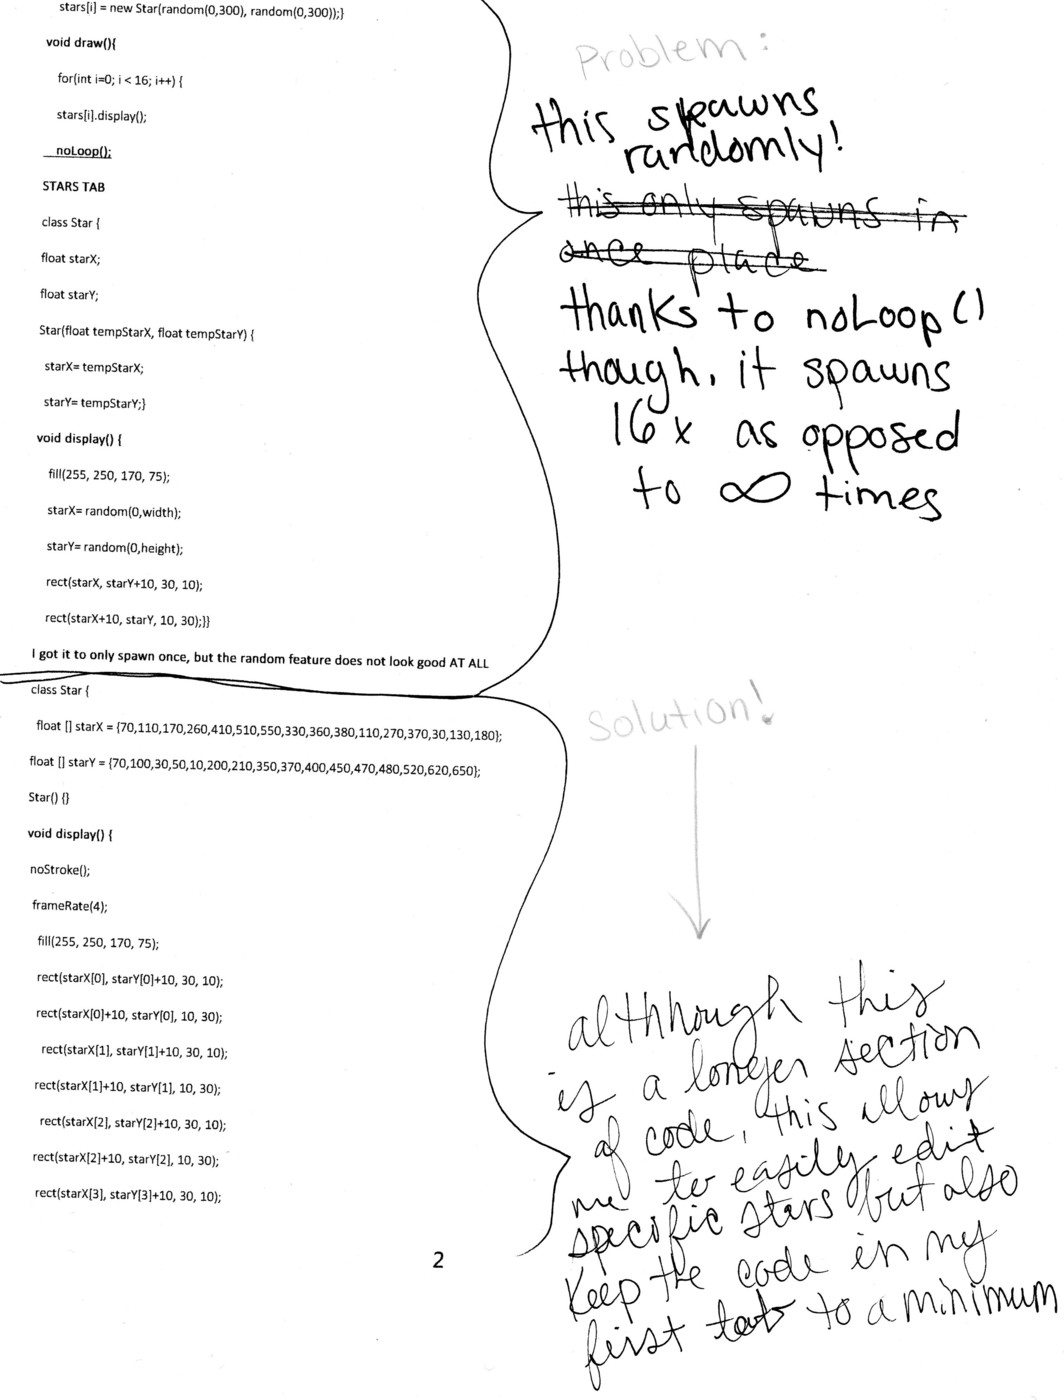 stars[i] = new Star(random(0,300), random(0,300));}
void draw(){
for(int i=0; i < 16; i++) {
stars[i].display();
noLoop();
STARS TAB
class Star {
float starX;
float starY;
Star(float tempStarX, float tempStarY) {
starX= tempStarX;
starY= tempStarY;}
void display() {
fill(255, 250, 170, 75);
starX= random(0,width);
starY= random(0,height);
rect(starX, starY+10, 30, 10);
rect(starX+10, starY, 10, 30);}}
I got it to only spawn once, but the random feature does not look good AT ALL
Problem:
this spawns
randomly!
this only spawns in
once place
thanks to noLoop()
though, it spawns
16x as opposed
to ∞ times
class Star {
float [] starX = {70,110,170,260,410,510,550,330,360,380,110,270,370,30,130,180};
float [] starY = {70,100,30,50,10,200,210,350,370,400,450,470,480,520,620,650};
Star() {}
void display() {
noStroke();
frameRate(4);
fill(255, 250, 170, 75);
rect(starX[0], starY[0]+10, 30, 10);
rect(starX[0]+10, starY[0], 10, 30);
rect(starX[1], starY[1]+10, 30, 10);
rect(starX[1]+10, starY[1], 10, 30);
rect(starX[2], starY[2]+10, 30, 10);
rect(starX[2]+10, starY[2], 10, 30);
rect(starX[3], starY[3]+10, 30, 10);
Solution!
althhough this
is a longer section
of code, this allows
me to easily edit
specific stars but also
keep the code in my
first tab to a minimum
2